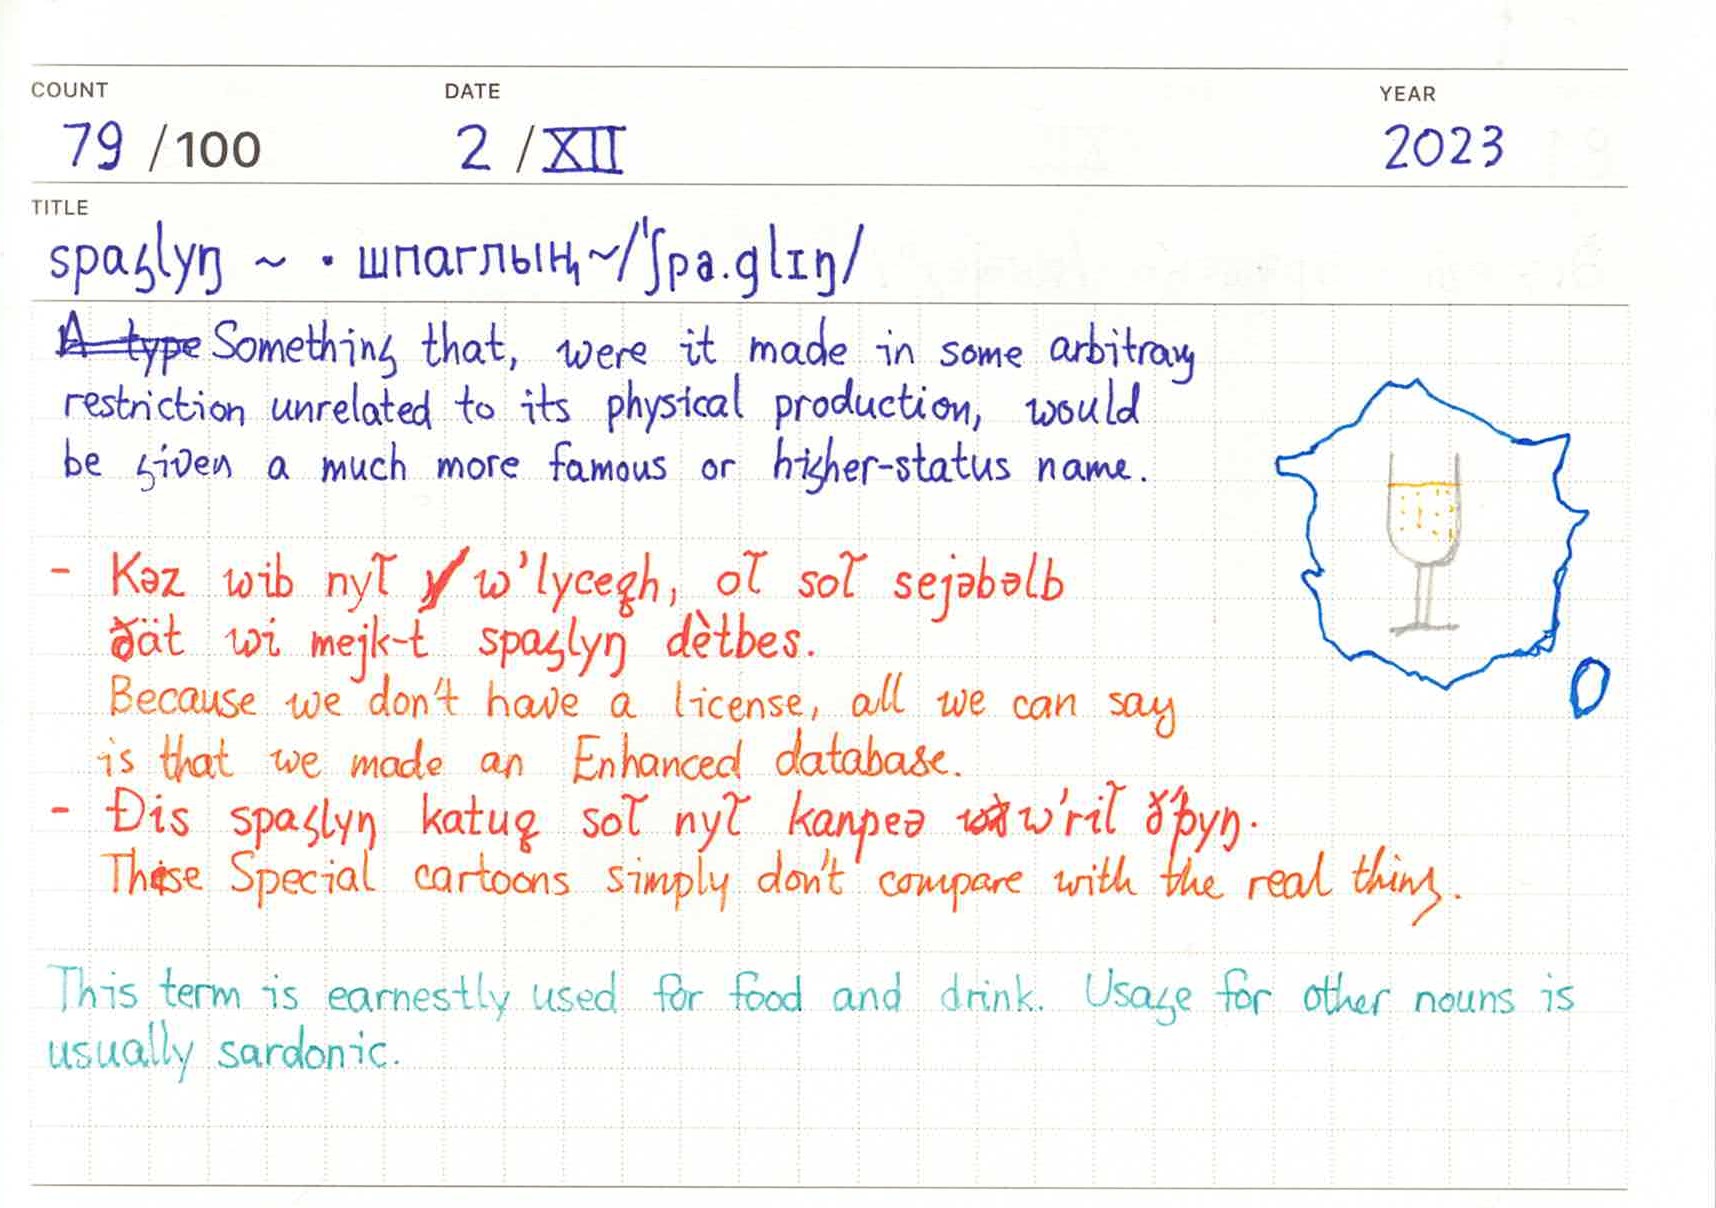 COUNT DATE YEAR
79 /100 2 /XII 2023
TITLE
spaglyŋ ~ · шпаглың ~/ˈʃpa.glɪŋ/
Something that, were it made in some arbitrary
restriction unrelated to its physical production, would
be given a much more famous or higher-status name.
- Kəz wib nyl̃ w'lyceȝh, ol̃ sol̃ sejəbəlb
ðät wi mejk-t spaglyŋ dètbes.
Because we don't have a license, all we can say
is that we made an Enhanced database.
- Ðis spaglyŋ katuȝ sol̃ nyl̃ kanpeə w'ril̃ ðþyŋ.
These Special cartoons simply don't compare with the real thing.
This term is earnestly used for food and drink. Usage for other nouns is
usually sardonic.